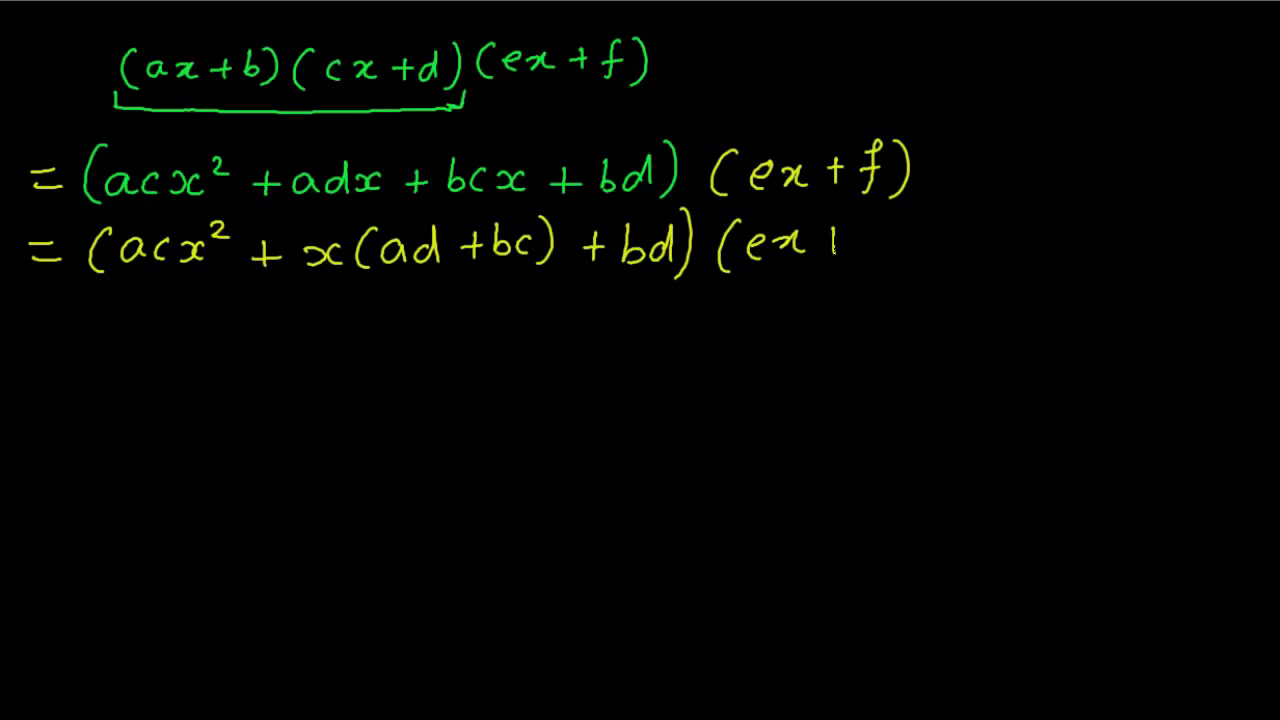 (ax+b)(cx+d)(ex+f)
= (acx² + adx + bcx + bd) (ex + f)
= (acx² + x(ad + bc) + bd) (ex